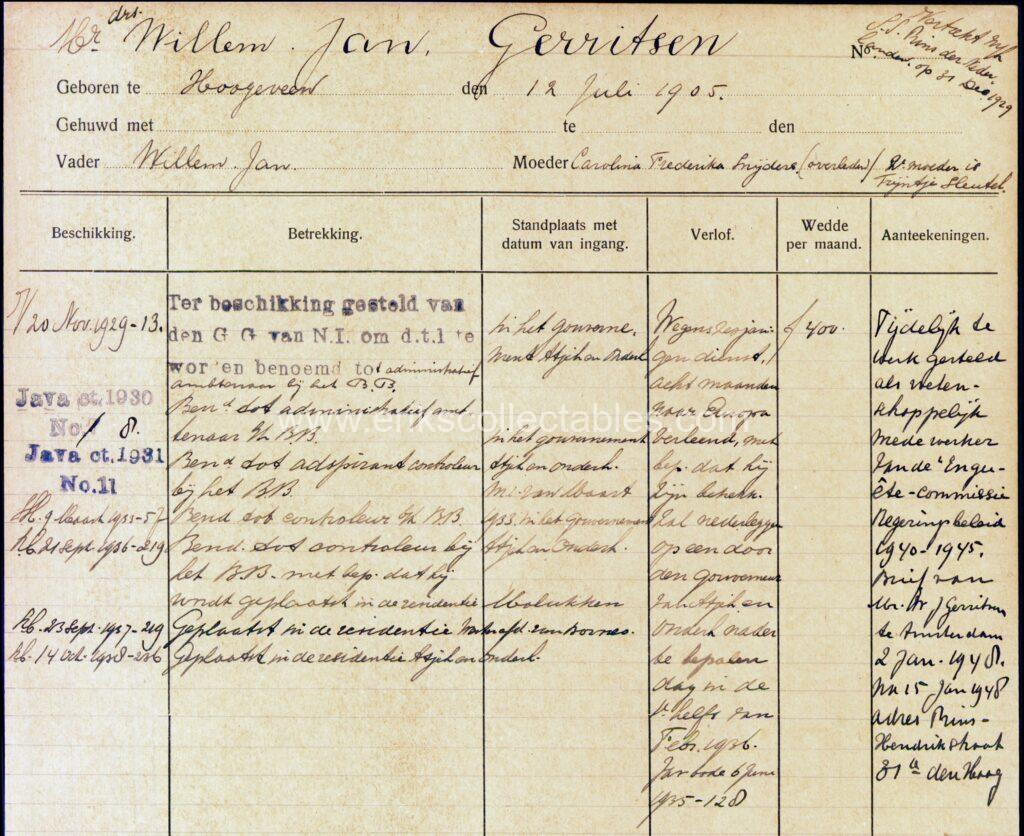 Mr drs. Willem Jan. Gerritsen
No. Vertrekt m/h
S.S. Prins der Neder-
landen op 31 Dec 1929
Geboren te Hoogeveen den 12 Juli 1905.
Gehuwd met te den
Vader Willem Jan. Moeder Carolina Frederika Snijders (overleden) 2e moeder is
Trijntje Sleutel.
Beschikking.
Betrekking.
Standplaats met
datum van ingang.
Verlof.
Wedde
per maand.
Aanteekeningen.
20 Nov. 1929-13.
Java ct. 1930
No. 8.
Java ct. 1931
No. 11
9 Maart 1933-57
21 Sept. 1936-219
23 Sept. 1937-219
14 Oct. 1938-236
Ter beschikking gesteld van
den G G van N.I. om d.t.l te
worden benoemd tot administratief
ambtenaar bij het B.B.
Bend tot administratief amb
tenaar b/h B.B.
Bend tot adspirant controleur
bij het B.B.
Bend tot controleur b/h B.B.
Bend. tot controleur bij
het B.B. met bep. dat hij
wordt geplaatst in de residentie
Geplaatst in de residentie afd. van Borneo.
Geplaatst in de residentie Atjeh en Onderh.
in het gouverne
ment Atjeh en Onderh
in het gouvernement
Atjeh en Onderh.
m.i. van Maart
1933. in het Gouvernement
Atjeh en Onderh.
Molukken
Wegens zesjari
gen dienst,
acht maanden
naar Europa
verleend, met
bep. dat hij
zijn betrek.
zal nederleggen
op een door
den Gouverneur
van Atjeh en
Onderh nader
te bepalen
dag in de
1e helft van
Febr. 1936.
Jav bode 6 Juni
1935-128
f 400.
Tijdelijk te
werk gesteld
als weten-
schappelijk
medewerker
van de "Enqu-
ête-commissie
Regeringsbeleid
1940-1945.
Brief van
Mr. Dr J Gerritsen
te Amsterdam
2 Jan. 1948.
na 15 Jan 1948
adres Prins-
Hendrikstraat
31a den Haag
www.erikscollectables.com